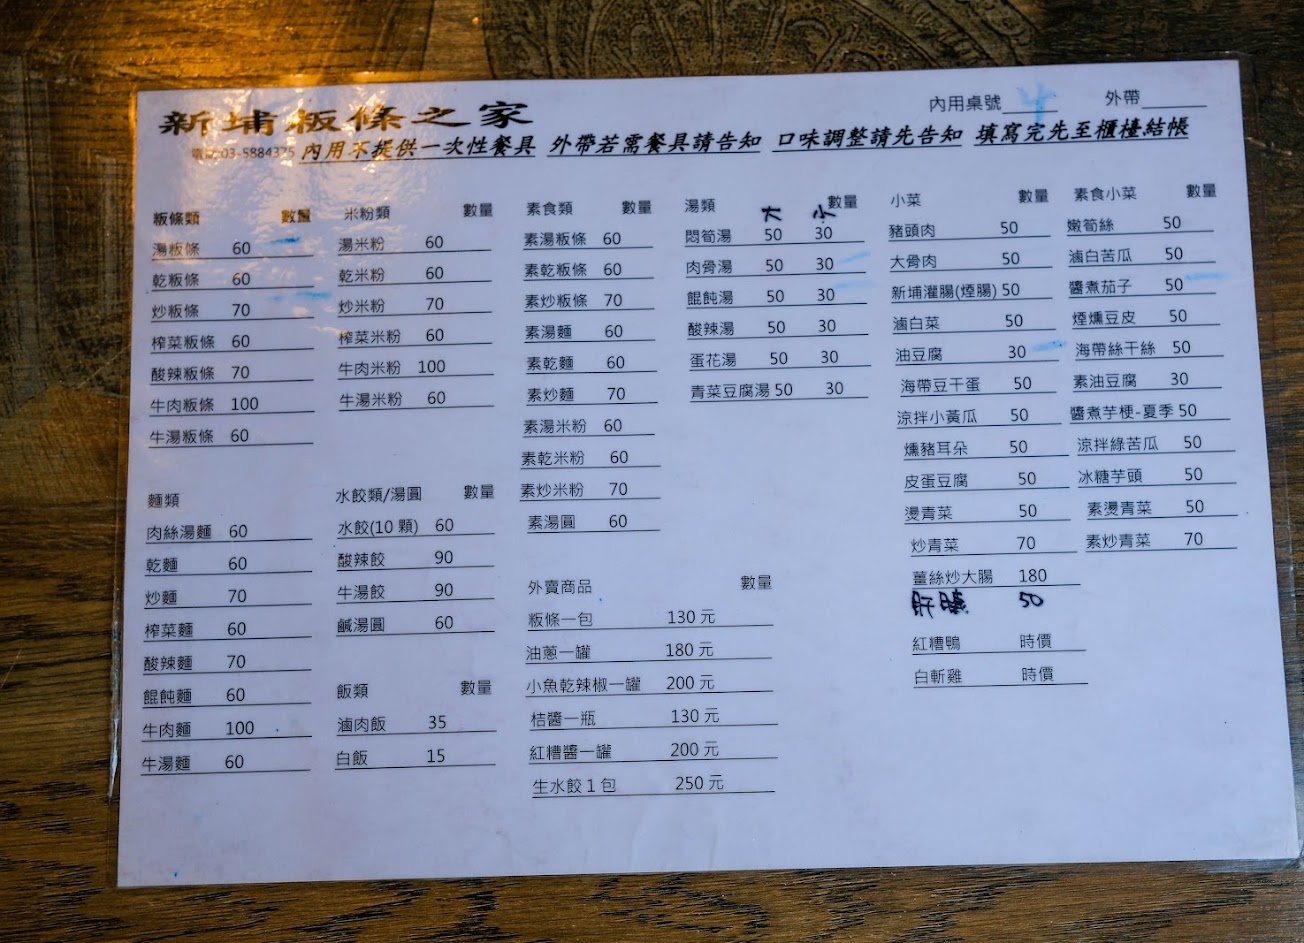 新埔粄條之家
內用桌號 4 外帶
電話:03-5884325 內用不提供一次性餐具 外帶若需餐具請告知 口味調整請先告知 填寫完先至櫃檯結帳
粄條類 數量
湯粄條 60
乾粄條 60
炒粄條 70
榨菜粄條 60
酸辣粄條 70
牛肉粄條 100
牛湯粄條 60
麵類
肉絲湯麵 60
乾麵 60
炒麵 70
榨菜麵 60
酸辣麵 70
餛飩麵 60
牛肉麵 100
牛湯麵 60
米粉類 數量
湯米粉 60
乾米粉 60
炒米粉 70
榨菜米粉 60
牛肉米粉 100
牛湯米粉 60
水餃類/湯圓 數量
水餃(10 顆) 60
酸辣餃 90
牛湯餃 90
鹹湯圓 60
飯類 數量
滷肉飯 35
白飯 15
素食類 數量
素湯粄條 60
素乾粄條 60
素炒粄條 70
素湯麵 60
素乾麵 60
素炒麵 70
素湯米粉 60
素乾米粉 60
素炒米粉 70
素湯圓 60
外賣商品 數量
粄條一包 130 元
油蔥一罐 180 元
小魚乾辣椒一罐 200 元
桔醬一瓶 130 元
紅糟醬一罐 200 元
生水餃 1 包 250 元
湯類 大 小 數量
悶筍湯 50 30
肉骨湯 50 30
餛飩湯 50 30
酸辣湯 50 30
蛋花湯 50 30
青菜豆腐湯 50 30
小菜 數量
豬頭肉 50
大骨肉 50
新埔灌腸(煙腸) 50
滷白菜 50
油豆腐 30
海帶豆干蛋 50
涼拌小黃瓜 50
燻豬耳朵 50
皮蛋豆腐 50
燙青菜 50
炒青菜 70
薑絲炒大腸 180
肝膶 50
紅糟鴨 時價
白斬雞 時價
素食小菜 數量
嫩筍絲 50
滷白苦瓜 50
醬煮茄子 50
煙燻豆皮 50
海帶絲干絲 50
素油豆腐 30
醬煮芋梗-夏季 50
涼拌綠苦瓜 50
冰糖芋頭 50
素燙青菜 50
素炒青菜 70